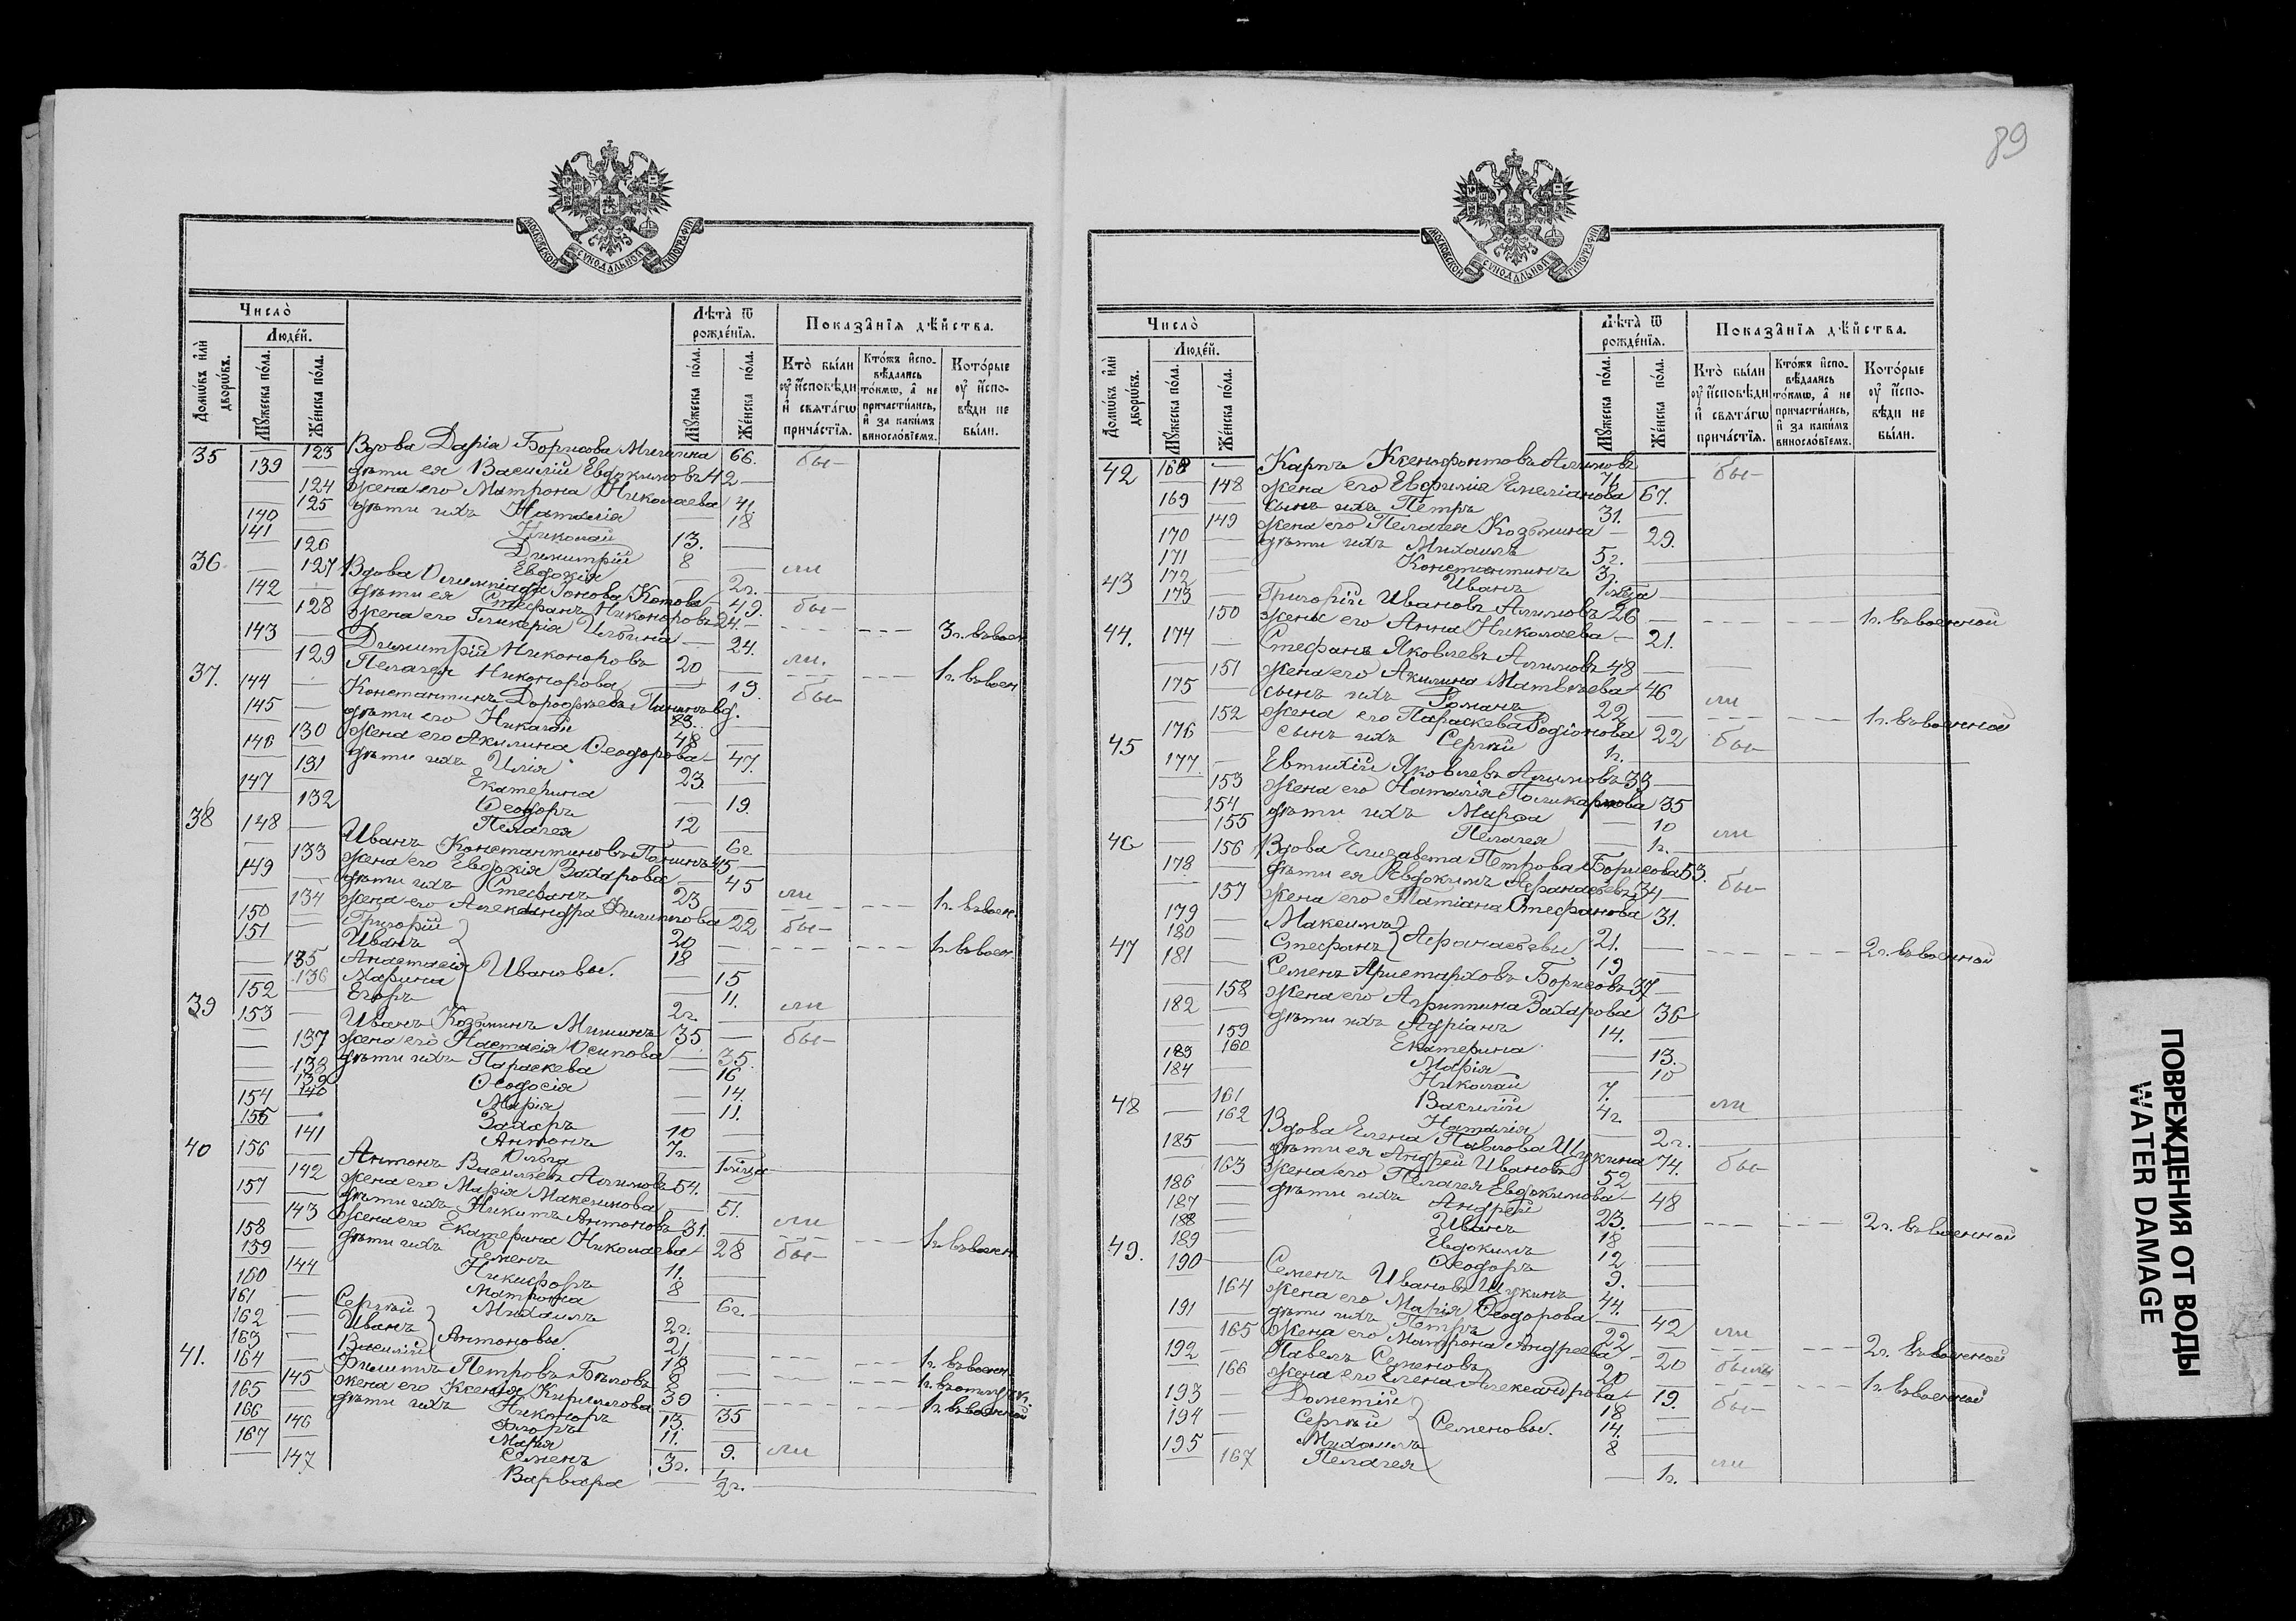 89
МОСКОВСКОЙ СѴНОДАЛЬНОЙ ТИПОГРАФІИ
Число̀
Людей.
Домѡвъ или дворѡвъ.
Мꙋжеска пола.
Женска пола.
Лѣта ѿ рожденїѧ.
Мꙋжеска пола.
Женска пола.
Показанїѧ дѣйства.
Кто были оу исповѣди и свѧтагѡ причастїѧ.
Ктожъ исповѣдались токмѡ, а не причастились, и за какимъ винословїемъ.
Которые оу исповѣди не были.
35 123 Вдова Дарія Борисова Мишина 66. бы-
139 дѣти ея Василій Евдокимовъ 42
124 жена его Матрона Николаева 41.
125 дѣти ихъ Наталія 18
140 Николай 13.
141 Димитрій 8
126 Евдокія 2г. ли
36. 127 Вдова Олимпіада Іонова Котова 49. бы-
142 дѣти ея Стефанъ Никоноровъ 24. 3г. въ воен
128 жена его Гликерія Ильина 24.
143 Димитрій Никоноровъ 20 1г. въ воен
129 Пелагея Никонорова 19. ли.
37. 144 Константинъ Дорофѣевъ Панинъ вд. 83. бы-
145 дѣти его Николай 48
130 жена его Акилина Ѳеодорова 47.
146 дѣти ихъ Илія 23.
131 Екатерина 19.
147 Ѳеодоръ 12
132 Пелагея 6г
38 148 Иванъ Константиновъ Панинъ 45
133 жена его Евдокія Захарова 45
149 дѣти ихъ Стефанъ 23 ли 1г. въ воен.
134 жена его Александра Филиппова 22 бы-
150 Григорій 20 1г. въ воен.
151 Иванъ 18
135 Анастасія Ивановы. 15
136 Марина 11.
152 Егоръ 2г. ли
39 153 Иванъ Козьминъ Мишинъ 35 бы-
137 жена его Настасія Осипова 35.
138 дѣти ихъ Параскева 16
139 Ѳеодосія 14.
140 Марія 11.
154 Захаръ 10
155 Антонъ 7г.
141 Ольга
40 156 Антонъ Васильевъ Алимовъ 54.
142 жена его Марія Максимова 51.
157 дѣти ихъ Никита Антоновъ 31. ли 1г. въ воен
143 жена его Екатерина Николаева 28 бы-
158 дѣти ихъ Семенъ 11.
159 Никифоръ 8
144 Матрона 6г.
160 Михаилъ 2г.
161 Сергѣй 21 1г. въ воен
162 Иванъ Антоновы. 18
163 Василій 8
41. 164 Филиппъ Петровъ Бѣловъ 39 1г. въ военной
145 жена его Ксенія Кириллова 35
165 дѣти ихъ Никоноръ 13.
166 11.
146 Марія 9. ли
167 Семенъ 3г.
147 Варвара 1/2г.
МОСКОВСКОЙ СѴНОДАЛЬНОЙ ТИПОГРАФІИ
Число̀
Людей.
Домѡвъ или дворѡвъ.
Мꙋжеска пола.
Женска пола.
Лѣта ѿ рожденїѧ.
Мꙋжеска пола.
Женска пола.
Показанїѧ дѣйства.
Кто были оу исповѣди и свѧтагѡ причастїѧ.
Ктожъ исповѣдались токмѡ, а не причастились, и за какимъ винословїемъ.
Которые оу исповѣди не были.
42 168 Карпъ Ксенофонтовъ Алимовъ 71 бы-
148 жена его Евфимія Емеліанова 67.
169 сынъ ихъ Петръ 31.
149 жена его Пелагея Козьмина 29.
170 дѣти ихъ Михаилъ 5г.
171 Константинъ 3г.
172 Иванъ
43 173 Григорій Ивановъ Алимовъ 26 1г. въ военной
150 жена его Анна Николаева 21.
44. 174 Стефанъ Яковлевъ Алимовъ 48
151 жена его Акилина Матвѣева 46
175 сынъ ихъ Романъ 22 ли 1г. въ военной
152 жена его Параскева Родіонова 22 бы-
176 сынъ ихъ Сергѣй 1г.
45 177 Евтихій Яковлевъ Алимовъ 33
153 жена его Наталія Поликарпова 35
154 дѣти ихъ Марѳа 10
155 Пелагея 1г. ли
46 156 Вдова Елизавета Петрова Борисова 53. бы-
178 дѣти ея Евдокимъ Аѳанасьевъ 34
157 жена его Татіана Стефанова 31.
179 Максимъ 21. 2г. въ военной
180 Стефанъ Аѳанасьевы 19
47 181 Семенъ Аристарховъ Борисовъ 37
158 жена его Агриппина Захарова 36
182 дѣти ихъ Адріанъ 14.
159 Екатерина 13.
160 Марія 10
183 Николай 7.
184 Василій 4г.
161 Наталія 2г. ли
48 162 Вдова Елена Павлова Щукина 74. бы-
185 дѣти ея Андрей Ивановъ 52
163 жена его Пелагея Евдокимова 48
186 дѣти ихъ Андрей 23. 2г. въ военной
187 Иванъ 18
188 Евдокимъ 12
189 Ѳеодоръ 9.
49. 190 Семенъ Ивановъ Щукинъ 44.
164 жена его Марія Ѳеодорова 42
191 дѣти ихъ Петръ 22 ли 2г. въ военной
165 жена его Матрона Андреева 20 были
192 Павелъ Семеновъ 20 1г. въ военной
166 жена его Елена Александрова 19. бы-
193 Дометій 18
194 Сергѣй Семеновы. 14.
195 Михаилъ 8
167 Пелагея 1г. ли
ПОВРЕЖДЕНИЯ ОТ ВОДЫ
WATER DAMAGE